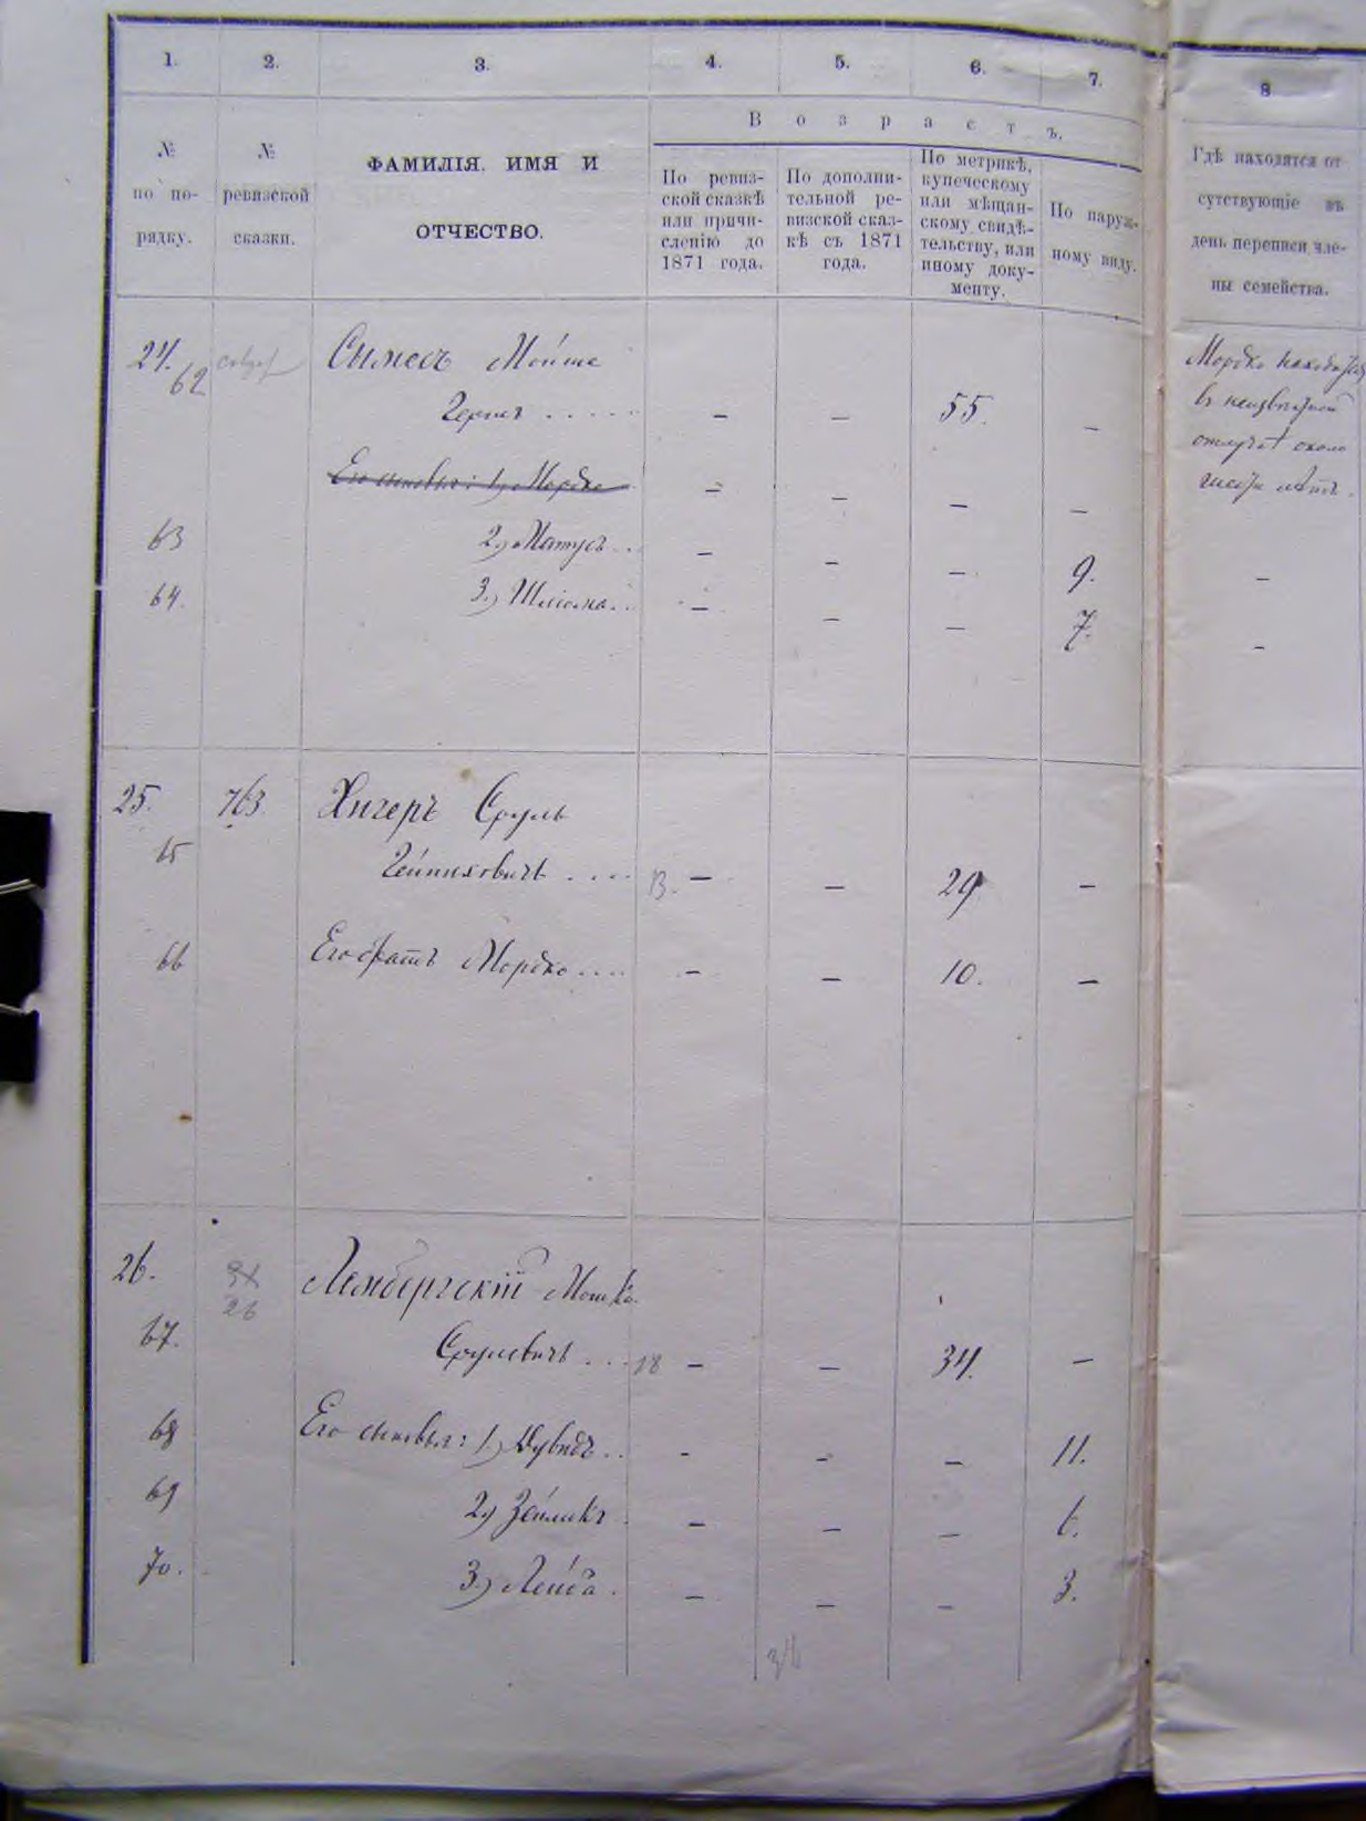 1. 2. 3. 4. 5. 6. 7. 8
№ по по-рядку.
№ ревизской сказки.
ФАМИЛІЯ, ИМЯ И
ОТЧЕСТВО.
Возрастъ.
По ревиз-
ской сказкѣ
или причи-
сленію до
1871 года.
По дополни-
тельной ре-
визской сказ-
кѣ съ 1871
года.
По метрикѣ,
купеческому
или мѣщан-
скому свидѣ-
тельству, или
иному доку-
менту.
По наруж-
ному виду.
Гдѣ находятся от-
сутствующіе въ
день переписи чле-
ны семейства.
24. Мойше Мордко находится
62 55. в неизвѣстной
Его сыновья: 1) Мордко отлучкѣ около
шести лѣтъ.
63 2.) Матусъ 9.
64. 3.) Шліома 7.
25. 763 Хигеръ Сруль
65 13. 29
66 Его братъ Мордко 10.
26. Лембергскій Мошка
26
67. Срулевичъ 18 34.
68 Его сыновья: 1.) Дувидъ 11.
69 2.) Зейликъ 6.
70. 3.) Лейба 3.
36